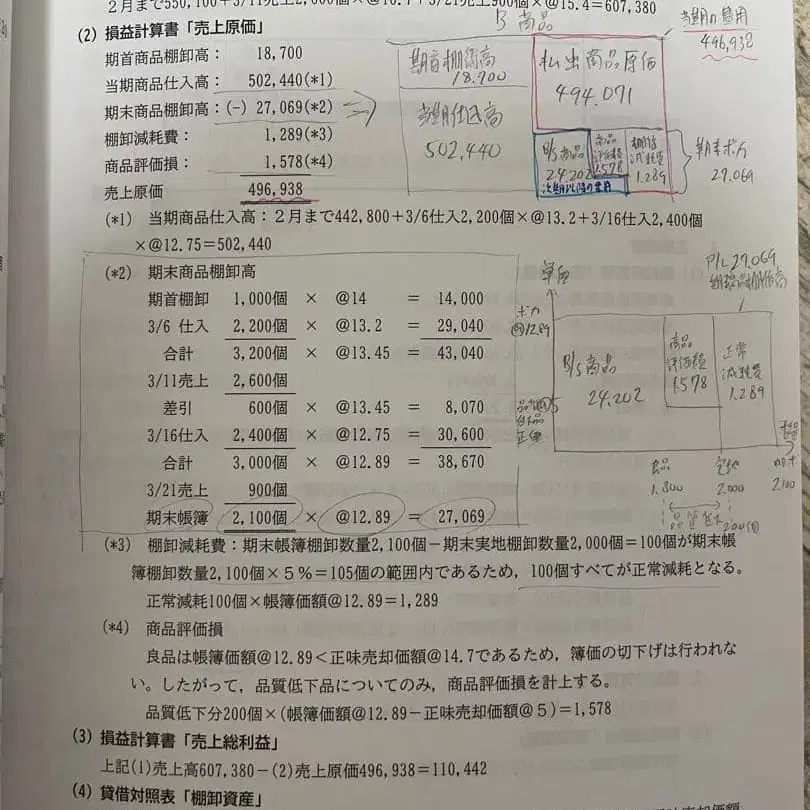 ２月まで550,100＋3/11売上2,600個×@16.7＋3/21売上900個×@15.4＝607,380
(2) 損益計算書「売上原価」
期首商品棚卸高： 18,700
当期商品仕入高： 502,440(*1)
期末商品棚卸高：(−) 27,069(*2)
棚卸減耗費： 1,289(*3)
商品評価損： 1,578(*4)
売上原価 496,938
B 商品
当期の費用
496,932
期首棚卸高
18,700
当期仕入高
502,440
払出商品原価
494,071
B/S商品
24,202
次期以降の費用
商品評価損
1,578
棚卸減耗費
1,289
期末ボカ
27,069
(*1) 当期商品仕入高：２月まで442,800＋3/6仕入2,200個×@13.2＋3/16仕入2,400個
×@12.75＝502,440
(*2) 期末商品棚卸高
期首棚卸 1,000個 × @14 ＝ 14,000
3/6 仕入 2,200個 × @13.2 ＝ 29,040
合計 3,200個 × @13.45 ＝ 43,040
3/11売上 2,600個
差引 600個 × @13.45 ＝ 8,070
3/16仕入 2,400個 × @12.75 ＝ 30,600
合計 3,000個 × @12.89 ＝ 38,670
3/21売上 900個
期末帳簿 2,100個 × @12.89 ＝ 27,069
単価
P/L 27,069
期末商品棚卸高
@12.89
B/S商品
24,202
商品
評価損
1,578
正常
減耗費
1,289
良品
1,800
実地
2,000
2,100
品質低下
200個
(*3) 棚卸減耗費：期末帳簿棚卸数量2,100個−期末実地棚卸数量2,000個＝100個が期末帳
簿棚卸数量2,100個×５％＝105個の範囲内であるため，100個すべてが正常減耗となる。
正常減耗100個×帳簿価額@12.89＝1,289
(*4) 商品評価損
良品は帳簿価額@12.89＜正味売却価額@14.7であるため，簿価の切下げは行われな
い。したがって，品質低下品についてのみ，商品評価損を計上する。
品質低下分200個×(帳簿価額@12.89−正味売却価額@５)＝1,578
(3) 損益計算書「売上総利益」
上記(1)売上高607,380−(2)売上原価496,938＝110,442
(4) 貸借対照表「棚卸資産」